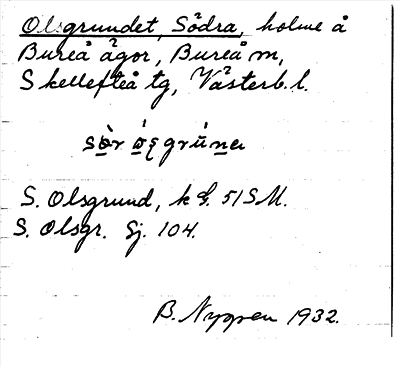 Olsgrundet, Södra, holme å
Bureå ägor, Bureå m,
Skellefteå tg, Västerb. l.
S. Olsgrund, k G. 51 S M.
S. Olsgr. Sj. 104.
B. Nygren 1932.